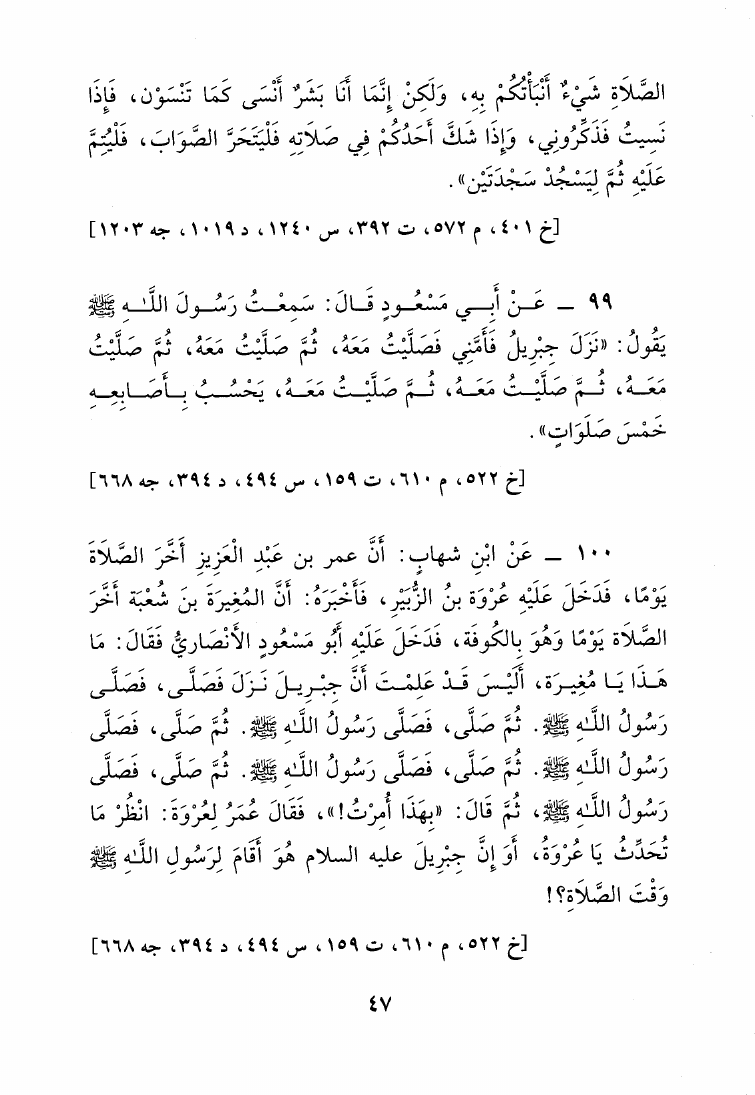 الصَّلَاةِ شَيْءٌ أَنْبَأْتُكُمْ بِهِ، وَلَكِنْ إِنَّمَا أَنَا بَشَرٌ أَنْسَى كَمَا تَنْسَوْن، فَإِذَا
نَسِيتُ فَذَكِّرُوني، وَإِذَا شَكَّ أَحَدُكُمْ فِي صَلَاتِهِ فَلْيَتَحَرَّ الصَّوَابَ، فَلْيُتِمَّ
عَلَيْهِ ثُمَّ لِيَسْجُدْ سَجْدَتَيْن».
[خ ٤٠١، م ٥٧٢، ت ٣٩٢، س ١٢٤٠، د ١٠١٩، جه ١٢٠٣]
٩٩ ـ عَـنْ أَبِـي مَسْعُـودٍ قَـالَ: سَمِعْـتُ رَسُـولَ اللَّـهِ ﷺ
يَقُولُ: «نَزَلَ جِبْرِيلُ فَأَمَّنِي فَصَلَّيْتُ مَعَهُ، ثُمَّ صَلَّيْتُ مَعَهُ، ثُمَّ صَلَّيْتُ
مَعَـهُ، ثُـمَّ صَلَّيْـتُ مَعَـهُ، ثُـمَّ صَلَّيْـتُ مَعَـهُ، يَحْسُـبُ بِـأَصَـابِعِـهِ
خَمْسَ صَلَوَاتٍ».
[خ ٥٢٢، م ٦١٠، ت ١٥٩، س ٤٩٤، د ٣٩٤، جه ٦٦٨]
١٠٠ ـ عَنْ ابْنِ شهابٍ: أَنَّ عمر بن عَبْدِ الْعَزِيزِ أَخَّرَ الصَّلَاةَ
يَوْمًا، فَدَخَلَ عَلَيْهِ عُرْوَة بنُ الزُّبَيْرِ، فَأَخْبَرَهُ: أَنَّ المُغِيرَةَ بنَ شُعْبَة أَخَّرَ
الصَّلَاة يَوْمًا وَهُوَ بِالكُوفَة، فَدَخَلَ عَلَيْهِ أَبُو مَسْعُودٍ الأَنْصَارِيُّ فَقَالَ: مَا
هَـذَا يَـا مُغِيـرَة، أَلَيْـسَ قَـدْ عَلِمْـتَ أَنَّ جِبْـرِيـلَ نَـزَلَ فَصَلَّـى، فَصَلَّـى
رَسُولُ اللَّهِ ﷺ. ثُمَّ صَلَّى، فَصَلَّى رَسُولُ اللَّهِ ﷺ. ثُمَّ صَلَّى، فَصَلَّى
رَسُولُ اللَّهِ ﷺ. ثُمَّ صَلَّى، فَصَلَّى رَسُولُ اللَّهِ ﷺ. ثُمَّ صَلَّى، فَصَلَّى
رَسُولُ اللَّهِ ﷺ، ثُمَّ قَالَ: «بِهَذَا أُمِرْتُ!»، فَقَالَ عُمَرُ لِعُرْوَةَ: انْظُرْ مَا
تُحَدِّثُ يَا عُرْوَةُ، أَوَ إِنَّ جِبْرِيلَ عليه السلام هُوَ أَقَامَ لِرَسُولِ اللَّهِ ﷺ
وَقْتَ الصَّلَاةِ؟!
[خ ٥٢٢، م ٦١٠، ت ١٥٩، س ٤٩٤، د ٣٩٤، جه ٦٦٨]
٤٧